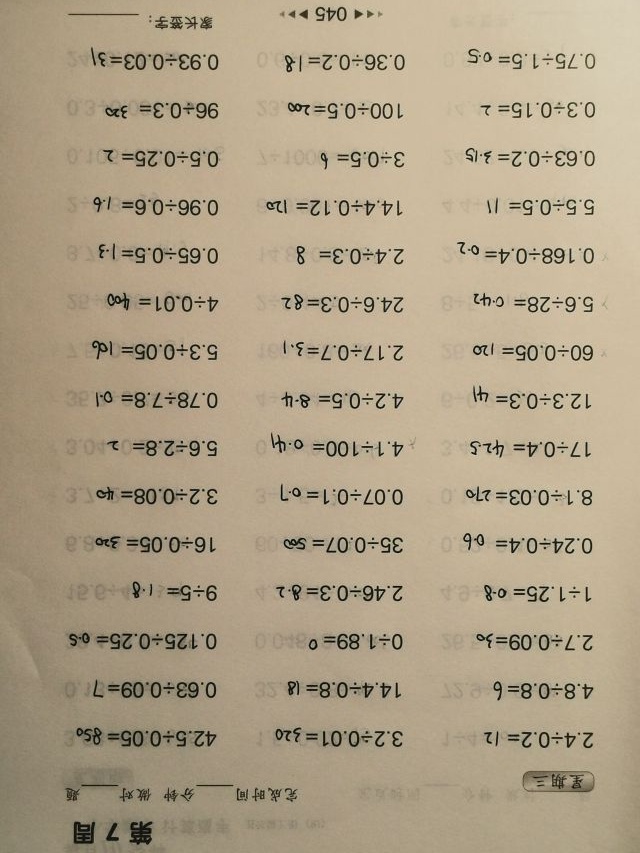 第 7 周
星期三 完成时间____分钟 做对____题
2.4÷0.2=12 3.2÷0.01=320 42.5÷0.05=850
4.8÷0.8=6 14.4÷0.8=18 0.63÷0.09=7
2.7÷0.09=30 0÷1.89=0 0.125÷0.25=0.5
1÷1.25=0.8 2.46÷0.3=8.2 9÷5=1.8
0.24÷0.4=0.6 35÷0.07=500 16÷0.05=320
8.1÷0.03=270 0.07÷0.1=0.7 3.2÷0.08=40
17÷0.4=42.5 4.1÷100=0.41 5.6÷2.8=2
12.3÷0.3=41 4.2÷0.5=8.4 0.78÷7.8=0.1
60÷0.05=120 2.17÷0.7=3.1 5.3÷0.05=106
5.6÷28=0.42 24.6÷0.3=82 4÷0.01=400
0.168÷0.4=0.2 2.4÷0.3=8 0.65÷0.5=1.3
5.5÷0.5=11 14.4÷0.12=120 0.96÷0.6=1.6
0.63÷0.2=3.15 3÷0.5=6 0.5÷0.25=2
0.3÷0.15=2 100÷0.5=200 96÷0.3=320
0.75÷1.5=0.5 0.36÷0.2=1.8 0.93÷0.03=31
045 家长签字：________